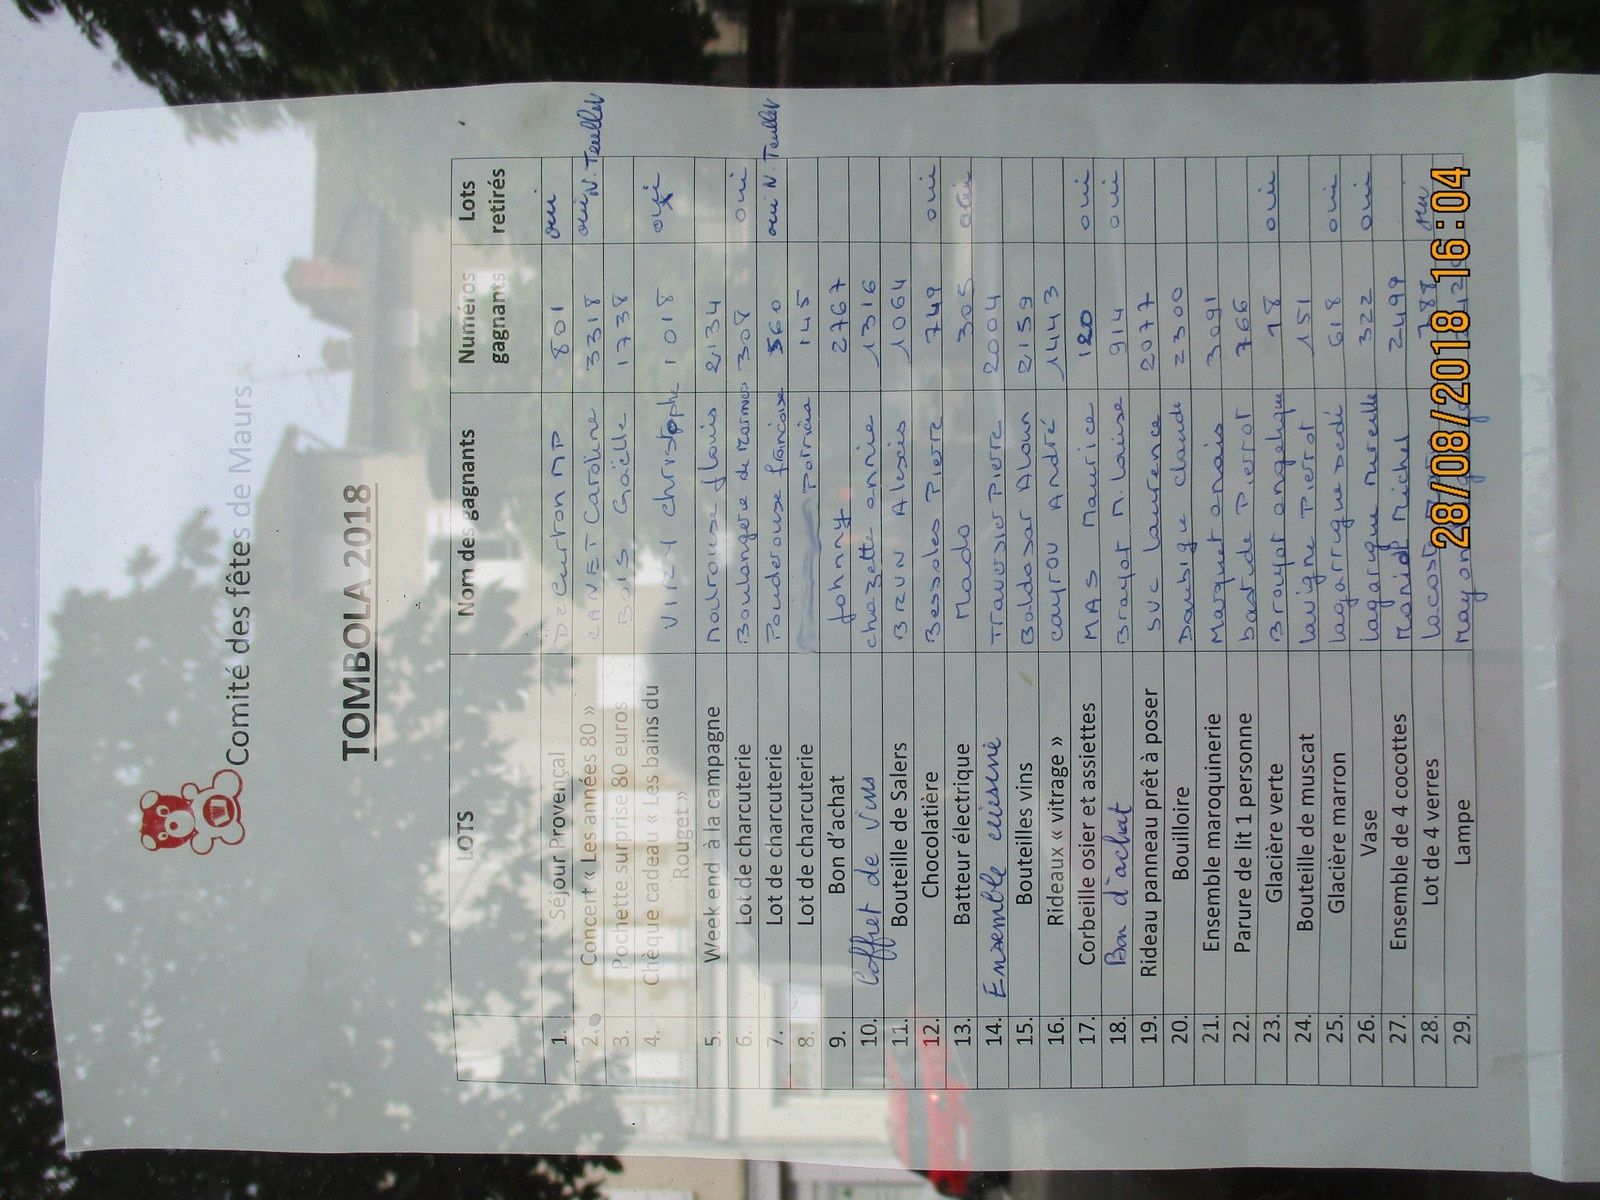 Comité des fêtes de Maurs
TOMBOLA 2018
LOTS Nom des gagnants Numéros gagnants Lots retirés
1. Séjour Provençal Decurton MP 801 oui
2. Concert « Les années 80 » CANET Caroline 3318 oui N. Teullet
3. Pochette surprise 80 euros BOIS Gaëlle 1738
4. Chèque cadeau « Les bains du Rouget » VINZY Christophe 1018 oui
5. Weekend à la campagne Louis 2134
6. Lot de charcuterie Boulangerie de 308 oui
7. Lot de charcuterie Pouderouse françoise 560 oui N. Teullet
8. Lot de charcuterie Patricia 145
9. Bon d'achat Johnny 2767
10. Coffret de Vins chazette annie 1316
11. Bouteille de Salers BRUN Alexis 1064
12. Chocolatière Bessoles Pierre 749 oui
13. Batteur électrique Mado 305 oui
14. Ensemble cuisine Traversier Pierre 2004
15. Bouteilles vins Baldasar Aloun 2159
16. Rideaux « vitrage » cayrou André 1443
17. Corbeille osier et assiettes MAS Maurice 120 oui
18. Bon d'achat Brayat M. Louise 914 oui
19. Rideau panneau prêt à poser SUC Laurence 2077
20. Bouilloire Daubige claude 2300
21. Ensemble maroquinerie Marquet anais 3091
22. Parure de lit 1 personne bastide Pierrot 766
23. Glacière verte Brayat angelique 98 oui
24. Bouteille de muscat lavigne Pierrot 151
25. Glacière marron lagarrigue Dédé 618 oui
26. Vase lagarrigue Murielle 322 oui
27. Ensemble de 4 cocottes Michel 2499
28. Lot de 4 verres oui
29. Lampe
28/08/2018 16:04